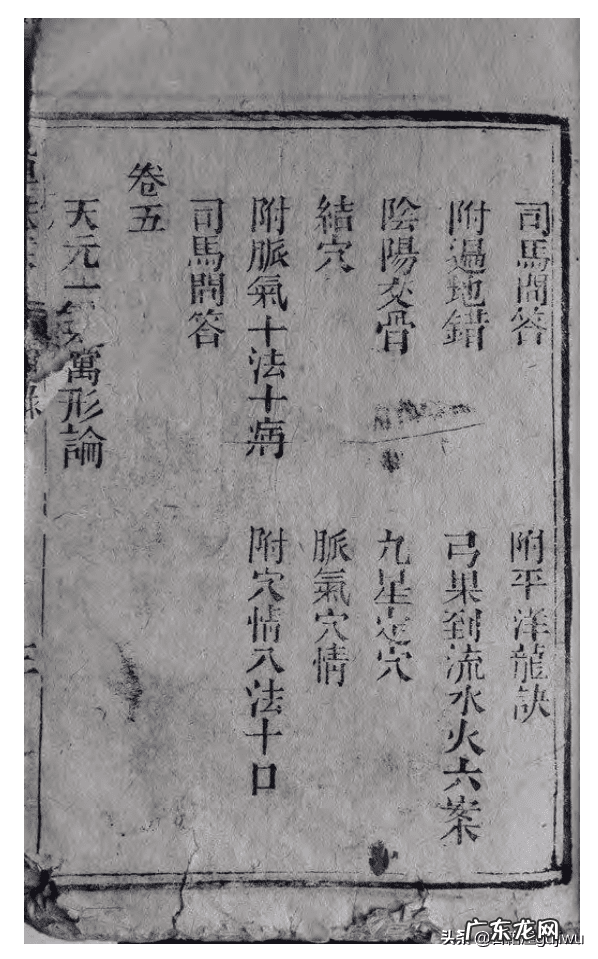 司馬問答
附平洋龍訣
附過地錯
弓果到流水火六案
陰陽交骨
九星定穴
結穴
脈氣穴情
附脈氣十法十病
附穴情八法十口
司馬問答
卷五
天元一 寓形論
广东龙网
头条